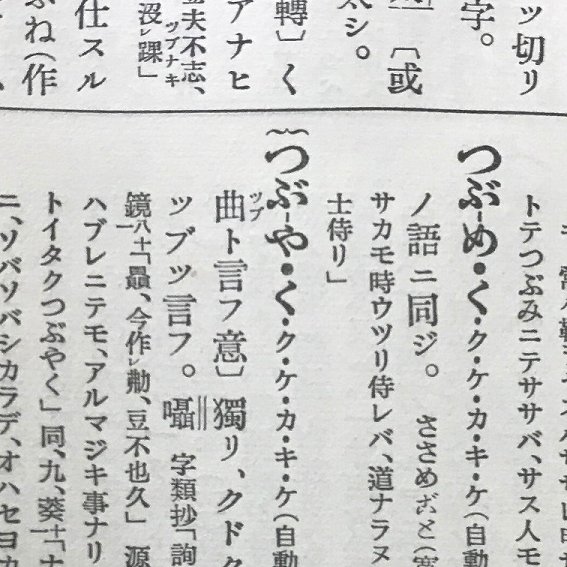 ッ切リ
字。
〔或
太シ。
轉〕く
アナヒ
金夫不志、
ツブナキ
沒レ踝」
仕スル
ふね(作
トテつぶみニテササバ、サス人モ
つぶ-め・く・ク・ケ・カ・キ・ケ(自動
ノ語ニ同ジ。 ささめごと(寛
サカモ時ウツリ侍レバ、道ナラヌ
士侍リ」
つぶ-や・く・ク・ケ・カ・キ・ケ(自動
曲ツブト言フ意〕獨リ、クドク
ツブツ言フ。囁 字類抄「詢
鏡八十「贔、今作レ勈、豆不也久」 源
ハブレニテモ、アルマジキ事ナリ
トイタクつぶやく」同、九、葵十「ナ
ニ、ソバソバシカラデ、オハセヨカ